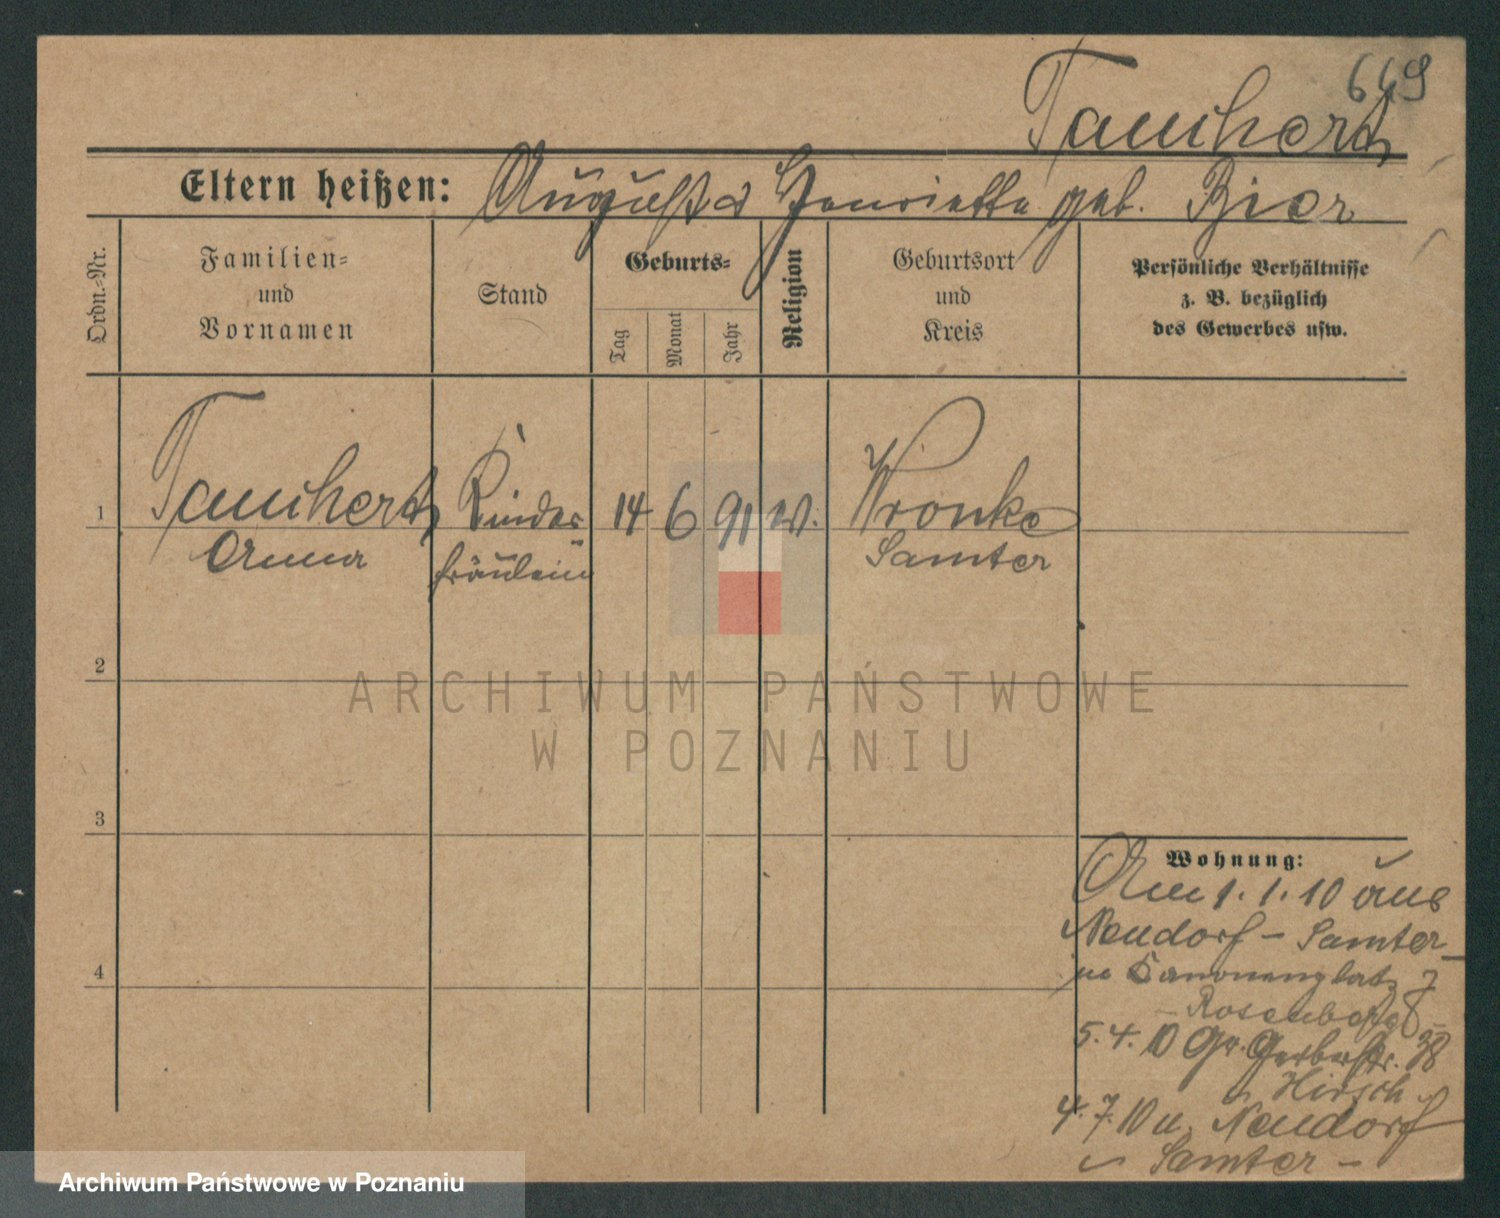 669
Tauchert
Eltern heißen: August u Henriette geb. Bier
Ordn.-Nr.
Familien-
und
Vornamen
Stand
Geburts-
Tag
Monat
Jahr
Religion
Geburtsort
und
Kreis
Persönliche Verhältnisse
z. B. bezüglich
des Gewerbes usw.
1
Tauchert
Anna
Kinder
fräulein
14 6 91
Wronke
Samter
2
ARCHIWUM PAŃSTWOWE
W POZNANIU
3
4
Wohnung:
Am 1.1.10 aus
Neudorf - Samter -
n Kanonenplatz 7
- Rosenberg -
5.4.10 Gr. Gerberstr. 38
Hirsch
4.7.10 n. Neudorf
Samter -
Archiwum Państwowe w Poznaniu